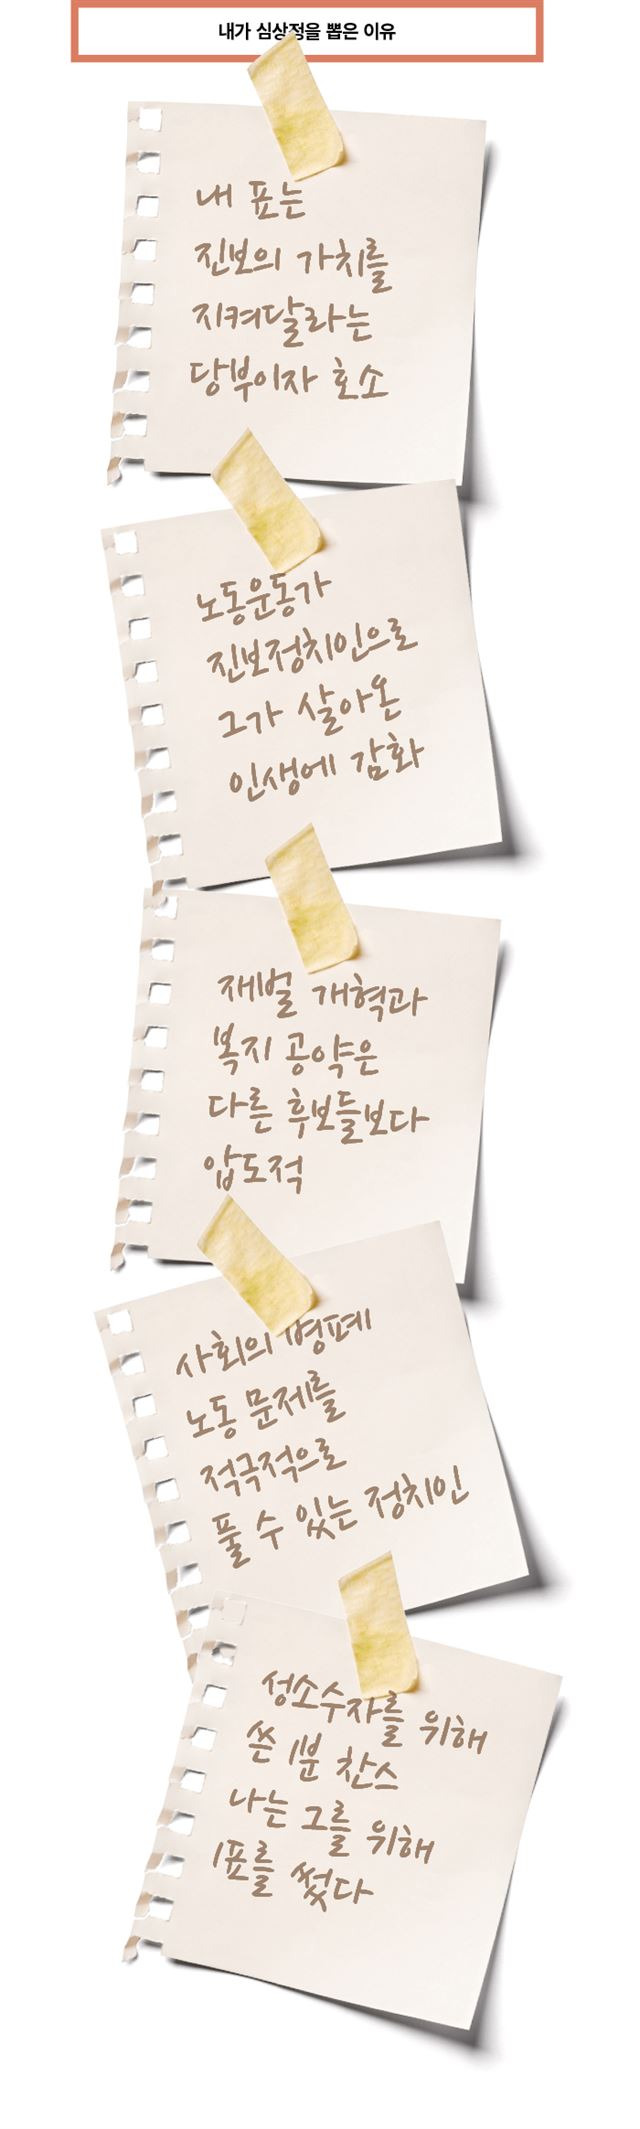 내가 심상정을 뽑은 이유
내 표는
진보의 가치를
지켜달라는
당부이자 호소
노동운동가
진보정치인으로
그가 살아온
인생에 감화
재벌 개혁과
복지 공약은
다른 후보들보다
압도적
사회의 병폐
노동 문제를
적극적으로
풀 수 있는 정치인
성소수자를 위해
쓴 1분 찬스
나는 그를 위해
1표를 썼다